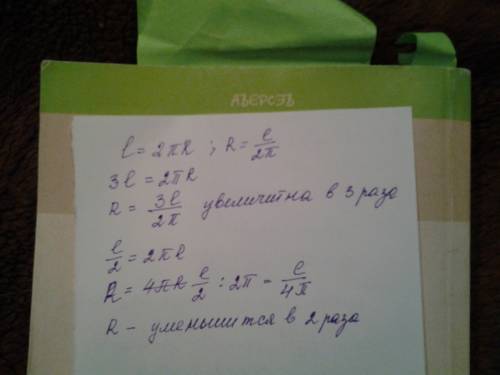 АВЕРСЭВ
l = 2πR ; R = l/2π
3l = 2πR
R = 3l/2π увеличитна в 3 раза
l/2 = 2πl
R = 4πR l/2 : 2π = l/4π
R – уменьшится в 2 раза